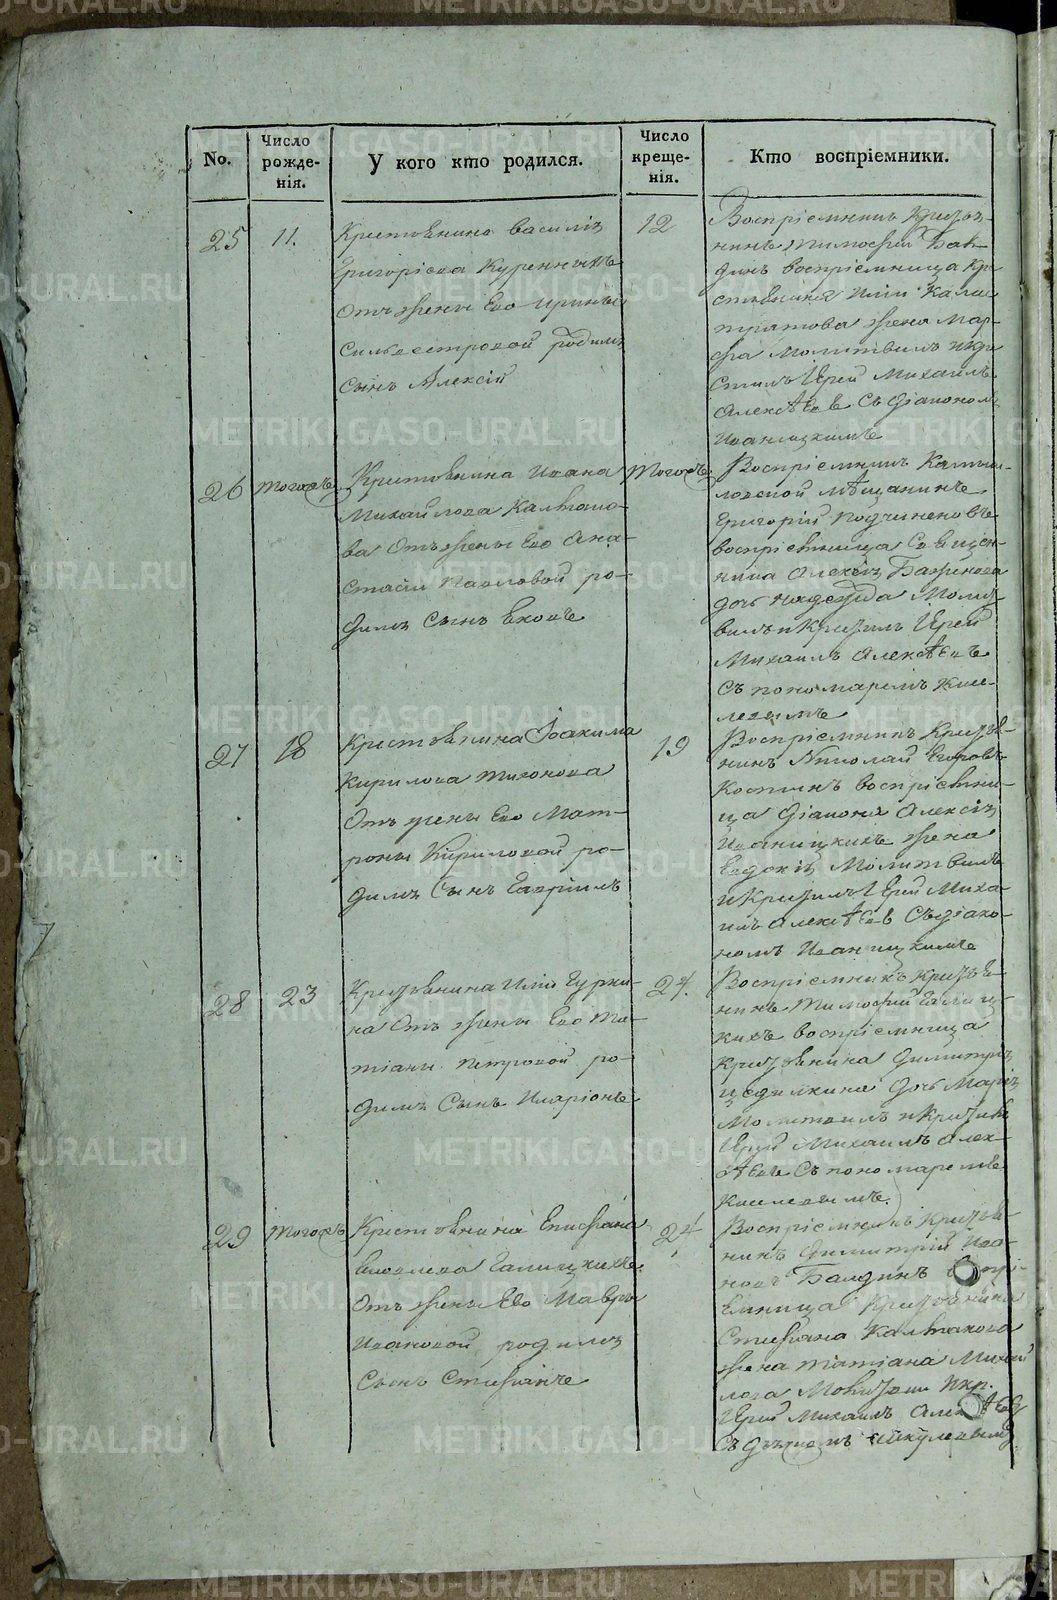 No.
Число рожде-нія.
У кого кто родился.
Число креще-нія.
Кто воспріемники.
25
11.
Крестьянина Василія
Григоріева Куренныхъ
Отъ жены Его Ирины
Сильвестровой родился
Сынъ Алексій
12
Воспріемникъ Кресть-
нинъ Тимофей Бал-
динъ воспріемница Кре
стьянина Иліи Кали
стратова жена Мар-
фа Молитвилъ и кре
стилъ Іерей Михаилъ
Алексѣевъ Съ діакономъ
Иваницкимъ
26
тогожъ
Крестьянина Ивана
Михайлова Калтако-
ва Отъ жены Его Ана-
стасіи Павловой ро-
дился Сынъ Яковъ
тогожъ
Воспріемникъ Камыш-
ловской мѣщанинъ
Григорій Подчиненовъ
воспріемница Священ-
ника Алексія Баженова
дочь Надежда Молит
вилъ и Крестилъ Іерей
Михаилъ Алексѣевъ
Съ пономаремъ Кисе-
левымъ
27
18
Крестьянина Іоакима
Кирилова Тихонова
Отъ жены Его Мат-
роны Кириловой ро-
дился Сынъ Гавріилъ
19
Воспріемникъ Крестья-
нинъ Николай Егоровъ
Костинъ воспріемни-
ца діакона Алексія
Иваницкихъ жена
Евдокія Молитвилъ
и Крестилъ Іерей Миха-
илъ Алексѣевъ Съ діако-
номъ Иваницкимъ
28
23
Крестьянина Иліи Гурки-
на Отъ жены Его Та-
тіаны Петровой ро-
дился Сынъ Иларіонъ
24.
Воспріемникъ Крестья-
нинъ Тимофей Галиц-
кихъ воспріемница
Крестьянина Димитрія
дочь Марія
Молитвилъ и Крестилъ
Іерей Михаилъ Алек-
сѣевъ Съ пономаремъ
Киселевымъ.
29
тогожъ
Крестьянина Епифана
Яковлева Галицкихъ
Отъ жены Его Мавры
Ивановой родился
Сынъ Стефанъ
24
Воспріемникъ Крестья-
нинъ Димитрій Ива-
новъ Балдинъ воспрі-
емница Крестьянина
Стефана Калтакова
жена Татіана Михай
лова Молитвилъ и кр.
Іерей Михаилъ Алексѣевъ
Съ дьячкомъ
METRIKI.GASO-URAL.RU